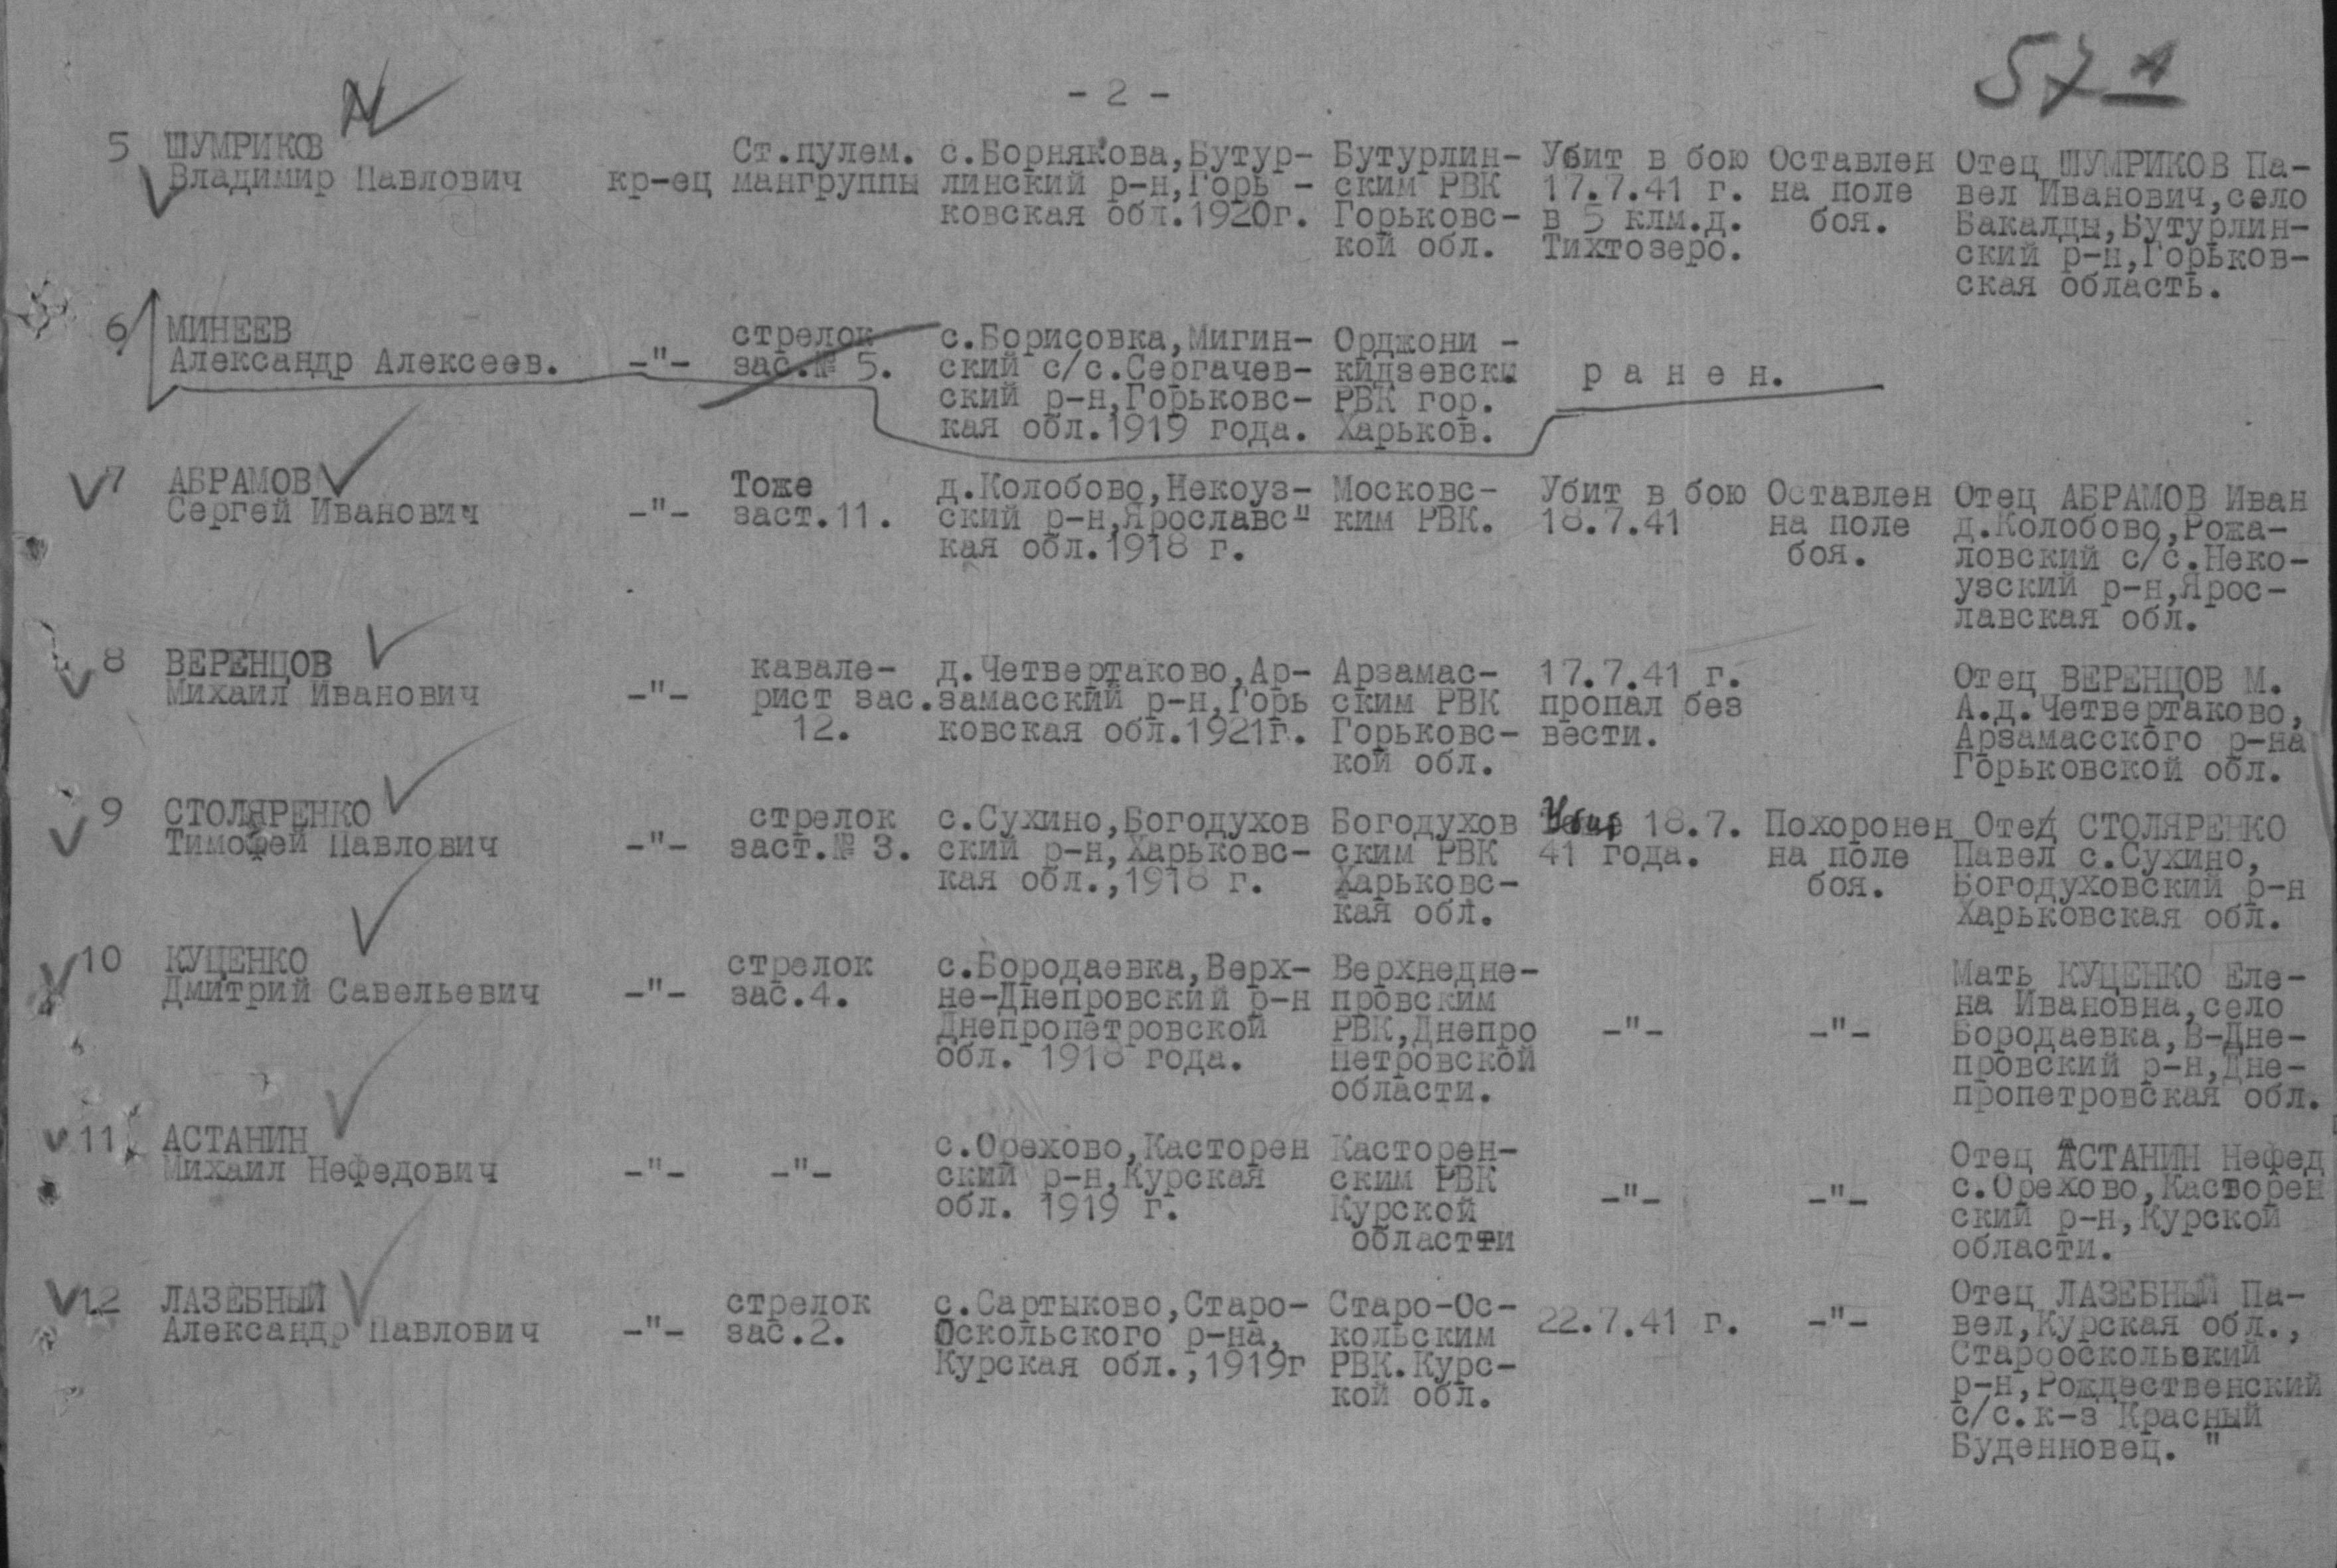 - 2 -
57 1
5 ШУМРИКОВ
Владимир Павлович
кр-ец
Ст.пулем.
мангруппы
с.Борнякова,Бутур-
линский р-н,Горь -
ковская обл.1920г.
Бутурлин-
ским РВК
Горьковс-
кой обл.
Убит в бою
17.7.41 г.
в 5 клм.д.
Тихтозеро.
Оставлен
на поле
боя.
Отец ШУМРИКОВ Па-
вел Иванович,село
Бакалды,Бутурлин-
ский р-н,Горьков-
ская область.
6 МИНЕЕВ
Александр Алексеев.
-"-
стрелок
зас.№ 5.
с.Борисовка,Мигин-
ский с/с.Сергачев-
ский р-н,Горьковс-
кая обл.1919 года.
Орджони -
кидзевски
РВК гор.
Харьков.
р а н е н.
7 АБРАМОВ
Сергей Иванович
-"-
Тоже
заст.11.
д.Колобово,Некоуз-
ский р-н,Ярославс"
кая обл.1918 г.
Московс-
ким РВК.
Убит в бою
18.7.41
Оставлен
на поле
боя.
Отец АБРАМОВ Иван
д.Колобово,Рожа-
ловский с/с.Неко-
узский р-н,Ярос-
лавская обл.
8 ВЕРЕНЦОВ
Михаил Иванович
-"-
кавале-
рист зас.
12.
д.Четвертаково,Ар-
замасский р-н,Горь
ковская обл.1921г.
Арзамас-
ским РВК
Горьковс-
кой обл.
17.7.41 г.
пропал без
вести.
Отец ВЕРЕНЦОВ М.
А.д.Четвертаково,
Арзамасского р-на
Горьковской обл.
9 СТОЛЯРЕНКО
Тимофей Павлович
-"-
стрелок
заст.№ 3.
с.Сухино,Богодухов
ский р-н,Харьковс-
кая обл.,1918 г.
Богодухов
ским РВК
Харьковс-
кая обл.
Убит 18.7.
41 года.
Похоронен
на поле
боя.
Отец СТОЛЯРЕНКО
Павел с.Сухино,
Богодуховский р-н
Харьковская обл.
10 КУЦЕНКО
Дмитрий Савельевич
-"-
стрелок
зас.4.
с.Бородаевка,Верх-
не-Днепровский р-н
Днепропетровской
обл. 1918 года.
Верхнедне-
провским
РВК,Днепро
петровской
области.
-"-
-"-
Мать КУЦЕНКО Еле-
на Ивановна,село
Бородаевка,В-Дне-
провский р-н,Дне-
пропетровская обл.
11 АСТАНИН
Михаил Нефедович
-"-
-"-
с.Орехово,Касторен
ский р-н,Курская
обл. 1919 г.
Касторен-
ским РВК
Курской
областти
-"-
-"-
Отец АСТАНИН Нефед
с.Орехово,Касторен
ский р-н,Курской
области.
12 ЛАЗЕБНЫЙ
Александр Павлович
-"-
стрелок
зас.2.
с.Сартыково,Старо-
Оскольского р-на,
Курская обл.,1919г
Старо-Ос-
кольским
РВК.Курс-
кой обл.
22.7.41 г.
-"-
Отец ЛАЗЕБНЫЙ Па-
вел,Курская обл.,
Старооскольский
р-н,Рождественский
с/с.к-з Красный
Буденновец. "